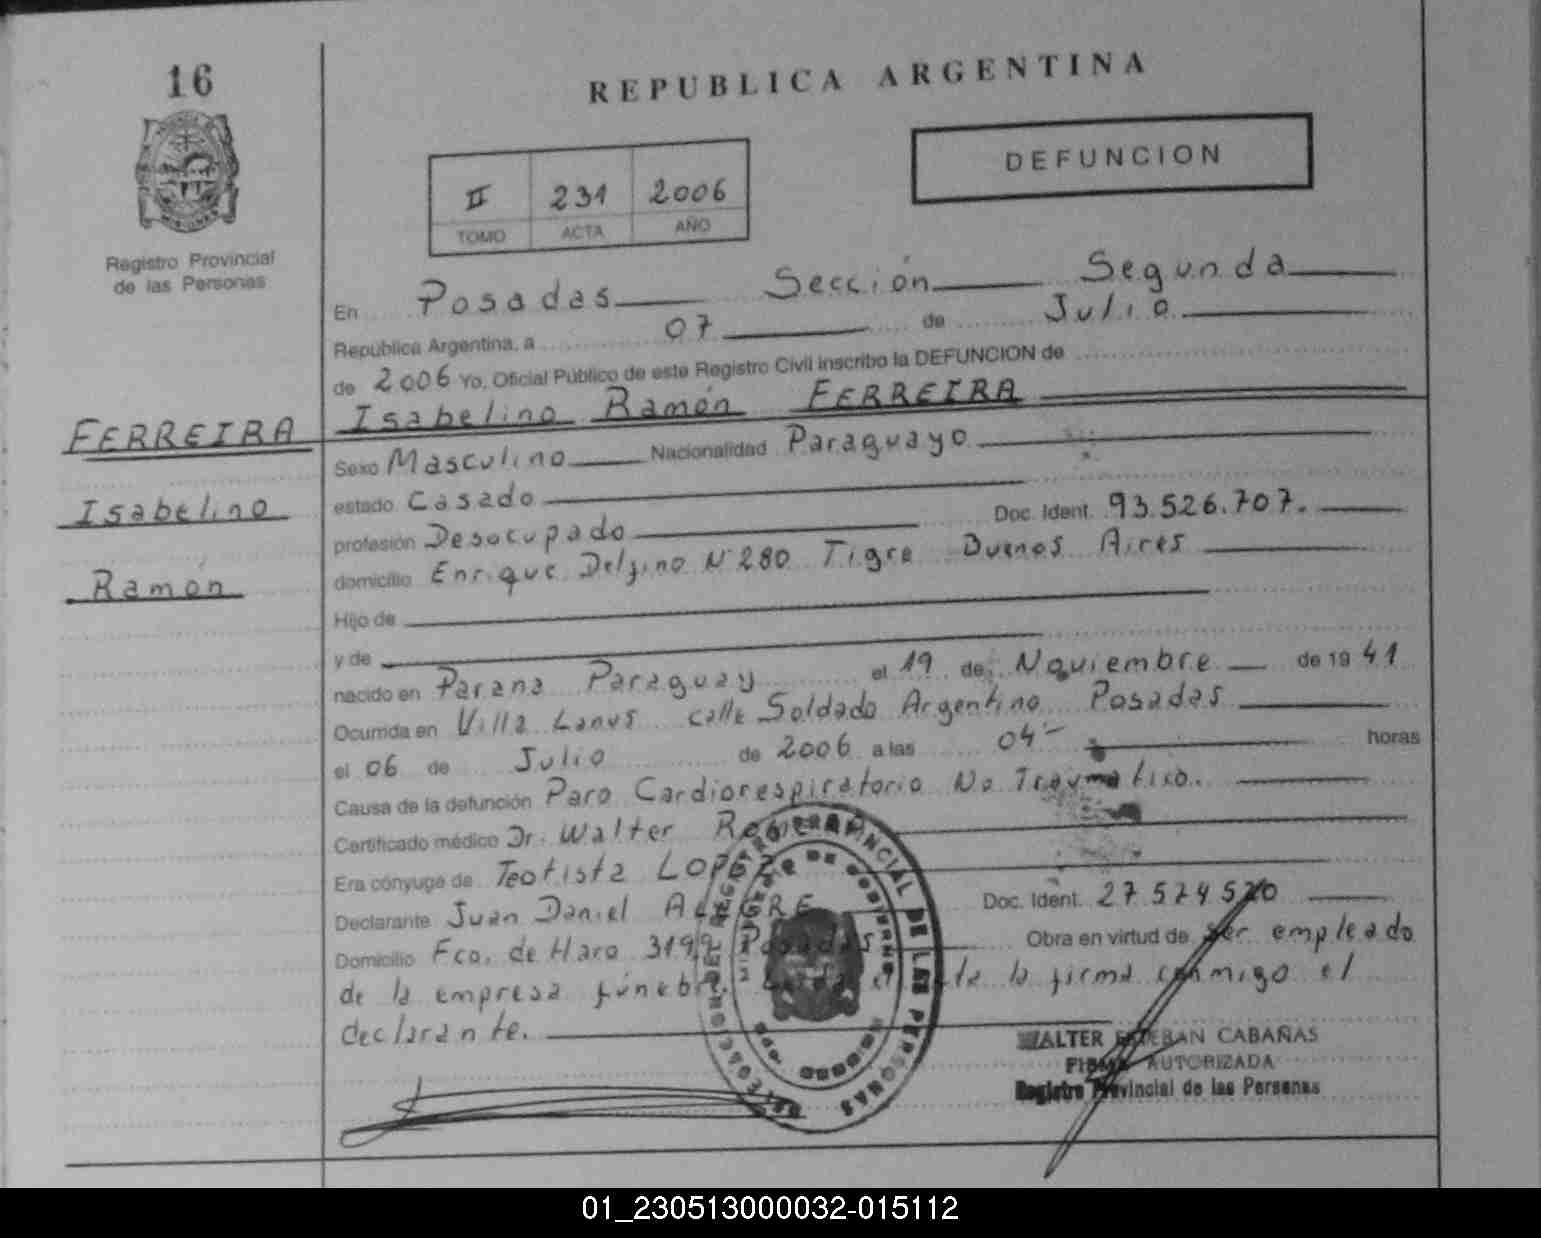 16
Registro Provincial
de las Personas
REPUBLICA ARGENTINA
DEFUNCION
II 231 2006
TOMO ACTA AÑO
En Posadas Sección Segunda
República Argentina, a 07 de Julio
de 2006 Yo, Oficial Público de este Registro Civil inscribo la DEFUNCION de
Isabelino Ramón FERREIRA
FERREIRA
Isabelino
Ramón
Sexo Masculino Nacionalidad Paraguayo
estado Casado
profesión Desocupado Doc. Ident. 93.526.707.
domicilio Enrique Delfino Nº 280 Tigre Buenos Aires
Hijo de
y de
nacido en Parana Paraguay el 19 de Noviembre de 19 41
Ocurrida en Villa Lanus calle Soldado Argentino Posadas
el 06 de Julio de 2006 a las 04 horas
Causa de la defunción Paro Cardiorespiratorio No Traumatico.
Certificado médico Dr. Walter
Era cónyuge de Teotista LOPEZ
Declarante Juan Daniel ALEGRE Doc. Ident. 27.574.520
Domicilio Fco. de Haro 3199 Posadas Obra en virtud de ser empleado
de la empresa fúnebre. Leida el acta la firma conmigo el
declarante.
REGISTRO PROVINCIAL DE LAS PERSONAS
WALTER ESTEBAN CABAÑAS
FIRMA AUTORIZADA
Registro Provincial de las Personas
01_230513000032-015112